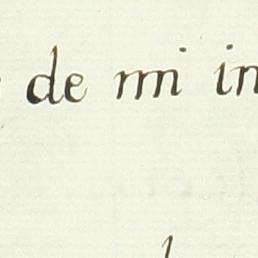 de mi in